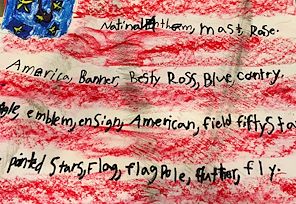 National Anthem, mast, Rose.
America, Banner, Besty Ross, Blue, contry.
ple, emblem, ensign, American, field, fifty Sta
pointed Stars, Flag, flag Pole, flutter, fly.